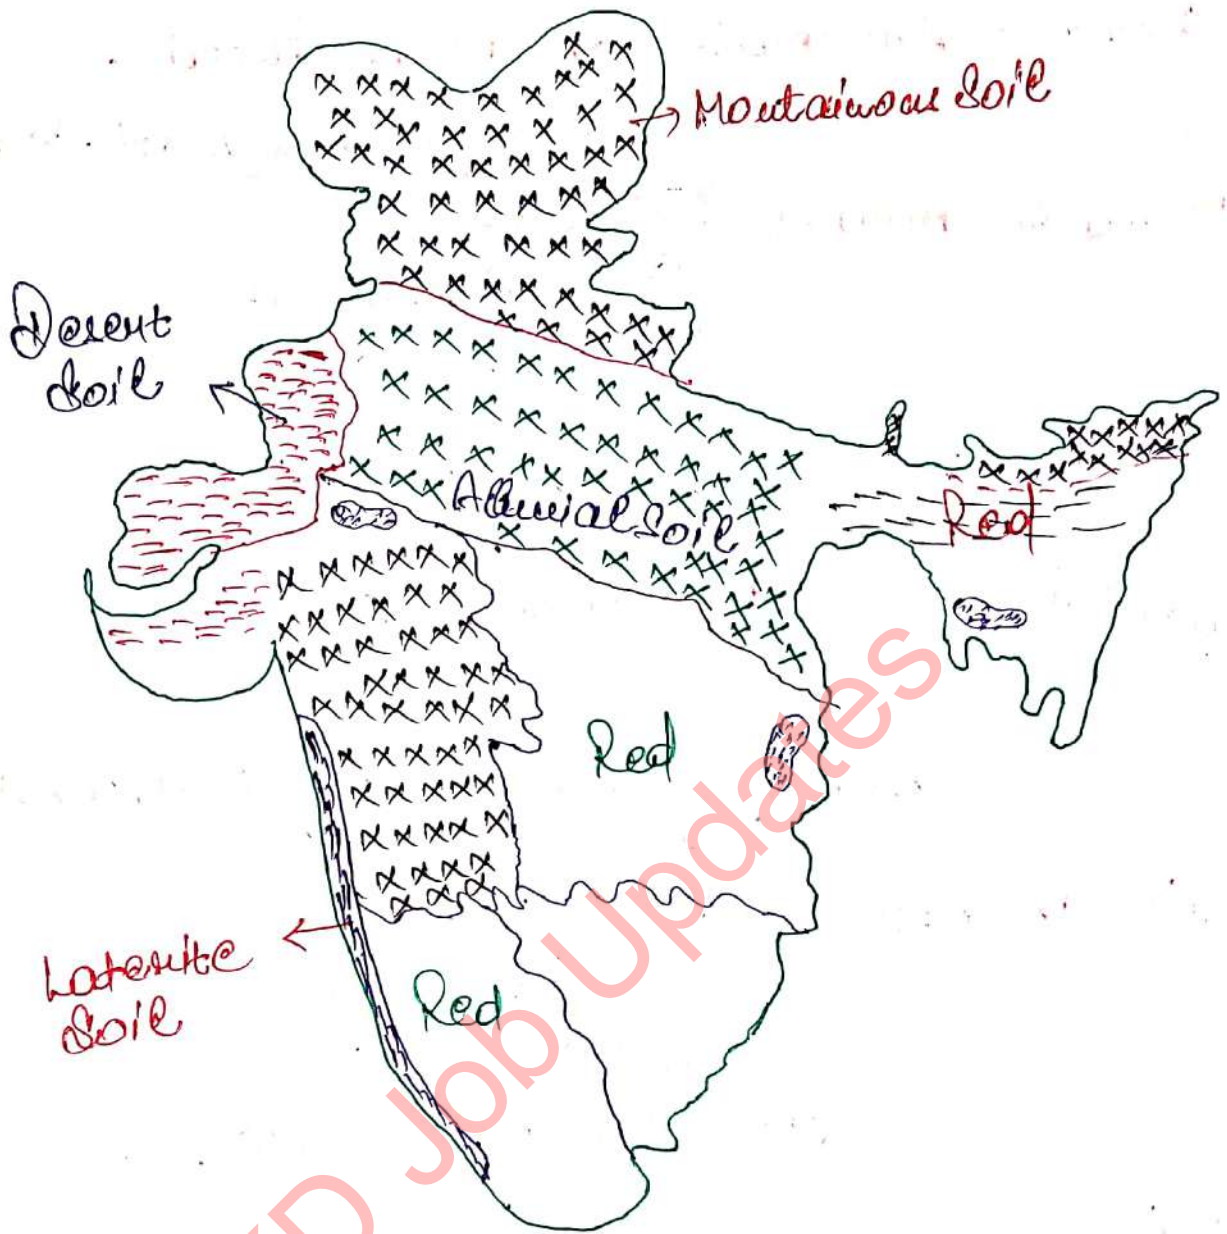 Moutainous Soil
Desert
Soil
Alluvial Soil
Red
Red
Laterite
Soil
Red
Job Updates